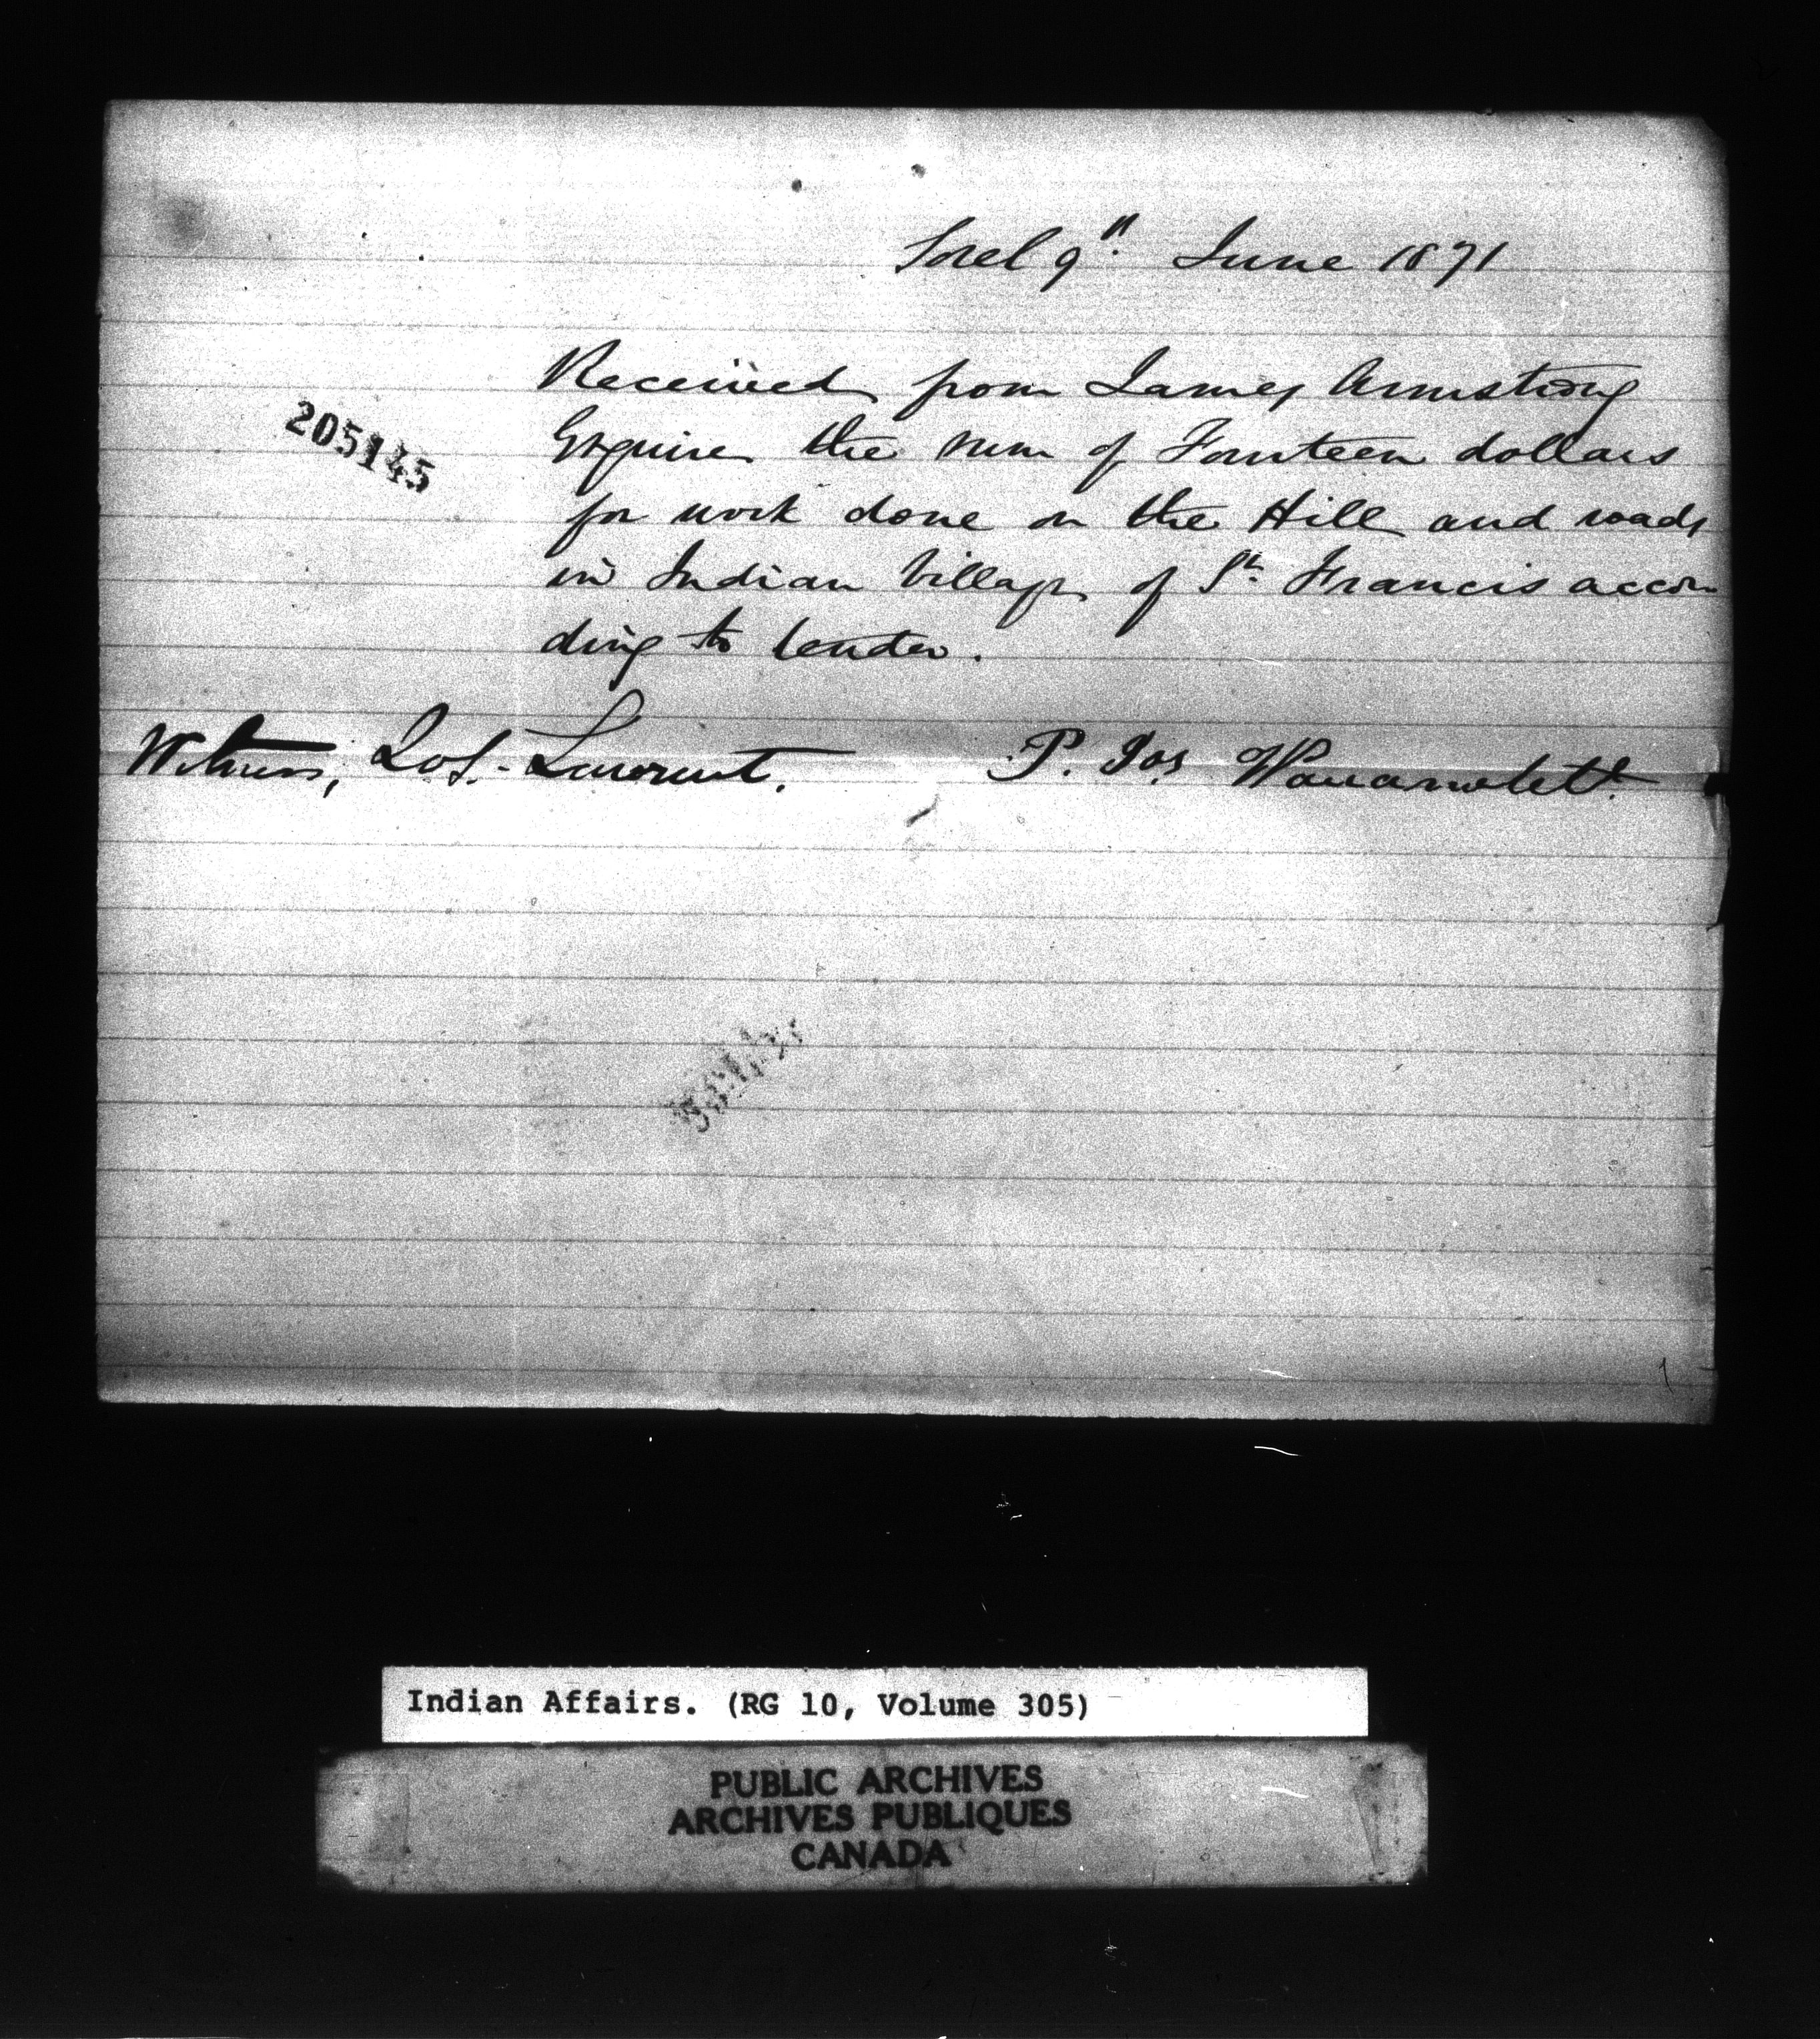 Sorel 9th June 1871
Received from James Armstrong
Esquire the sum of Fourteen dollars
for work done on the Hill and roads
in Indian Village of St. Francis accor
ding to tender.
205145
Witness, Jos. Laurent.
P. Jos
Indian Affairs. (RG 10, Volume 305)
PUBLIC ARCHIVES
ARCHIVES PUBLIQUES
CANADA